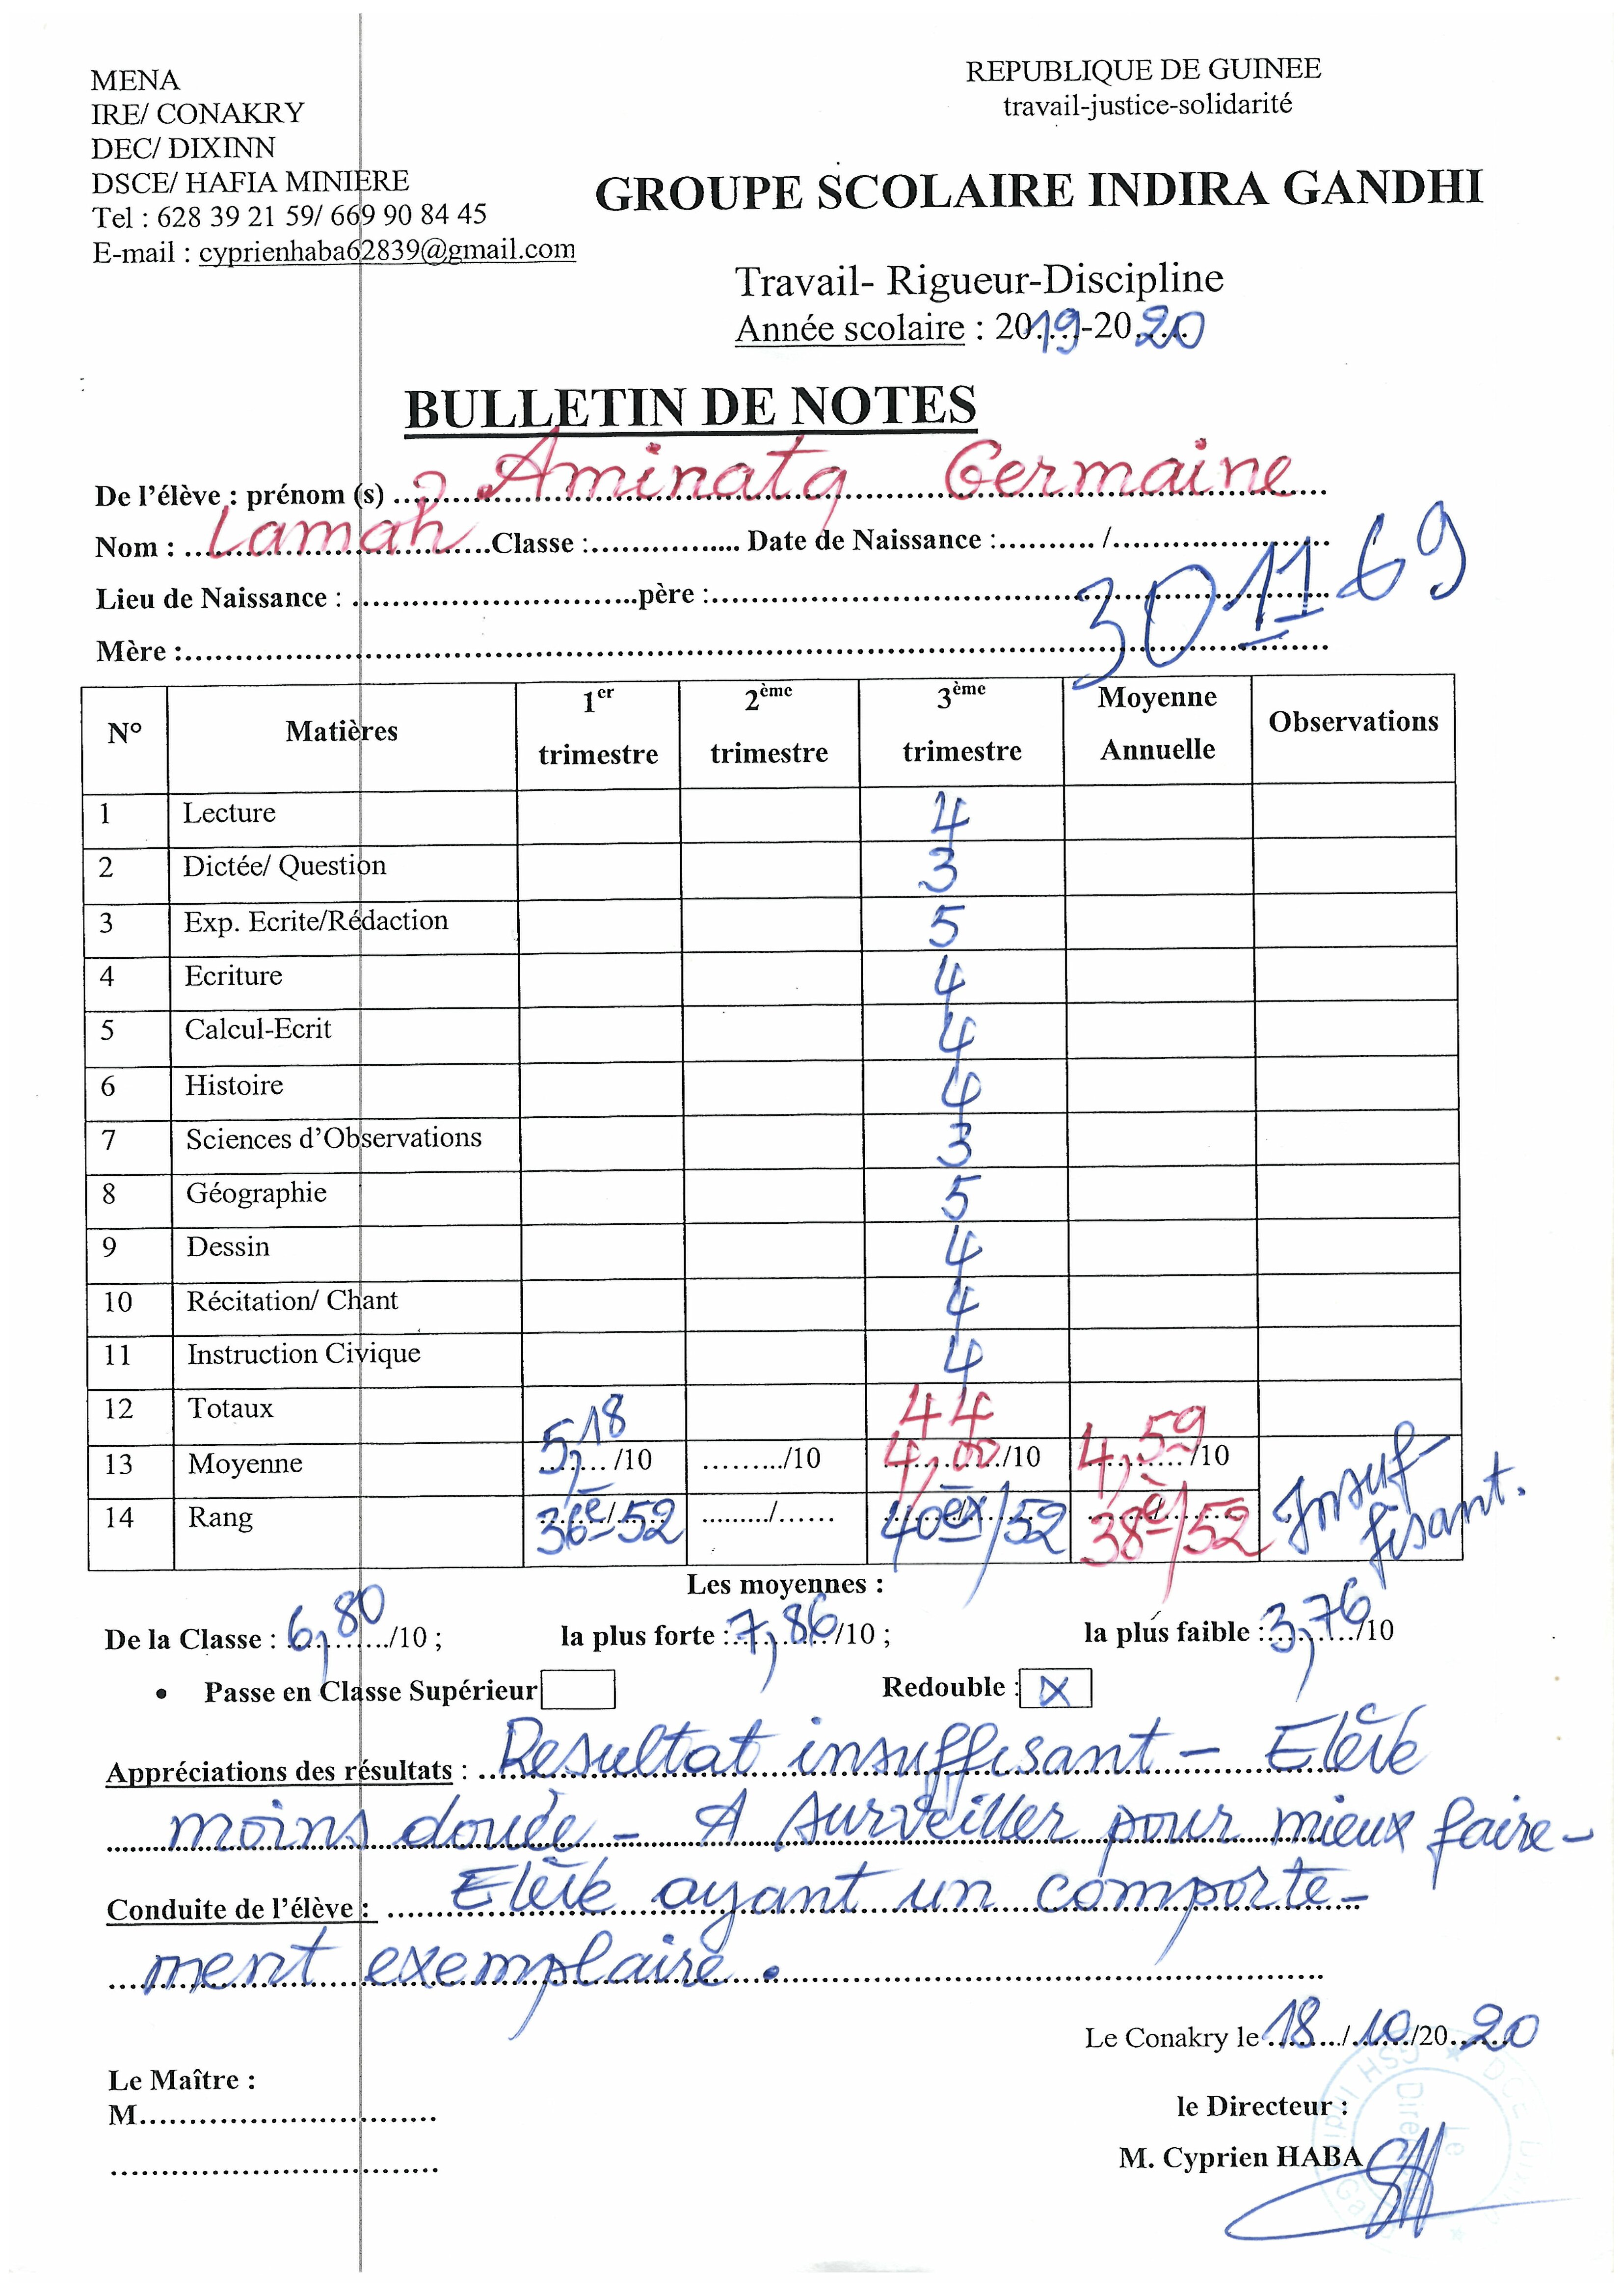 MENA
IRE/ CONAKRY
DEC/ DIXINN
DSCE/ HAFIA MINIERE
Tel : 628 39 21 59/ 669 90 84 45
E-mail : cyprienhaba62839@gmail.com
REPUBLIQUE DE GUINEE
travail-justice-solidarité
GROUPE SCOLAIRE INDIRA GANDHI
Travail- Rigueur-Discipline
Année scolaire : 2019-2020
BULLETIN DE NOTES
De l'élève : prénom (s) Aminata Germaine
Nom : Lamah Classe :.............. Date de Naissance :.......... /......................
Lieu de Naissance : ............................père :............................
Mère :............................
30 11 69
N° Matières 1er trimestre 2ème trimestre 3ème trimestre Moyenne Annuelle Observations
1 Lecture 4
2 Dictée/ Question 3
3 Exp. Ecrite/Rédaction 5
4 Ecriture 4
5 Calcul-Ecrit 4
6 Histoire 4
7 Sciences d'Observations 3
8 Géographie 5
9 Dessin 4
10 Récitation/ Chant 4
11 Instruction Civique 4
12 Totaux 44
13 Moyenne 5,18 /10 ........./10 4,00/10 4,59/10
14 Rang 36e/52 ........./...... 40ex/52 38è/52 Insuf
fisant.
Les moyennes :
De la Classe : 6,80/10 ; la plus forte : 7,86/10 ; la plus faible : 3,76/10
• Passe en Classe Supérieur Redouble : x
Appréciations des résultats : Resultat insuffisant - Elève
moins douée - A surveiller pour mieux faire-
Conduite de l'élève : Elève ayant un comporte-
ment exemplaire.
Le Conakry le 18/10/2020
Le Maître :
M.............................
le Directeur :
M. Cyprien HABA
Le